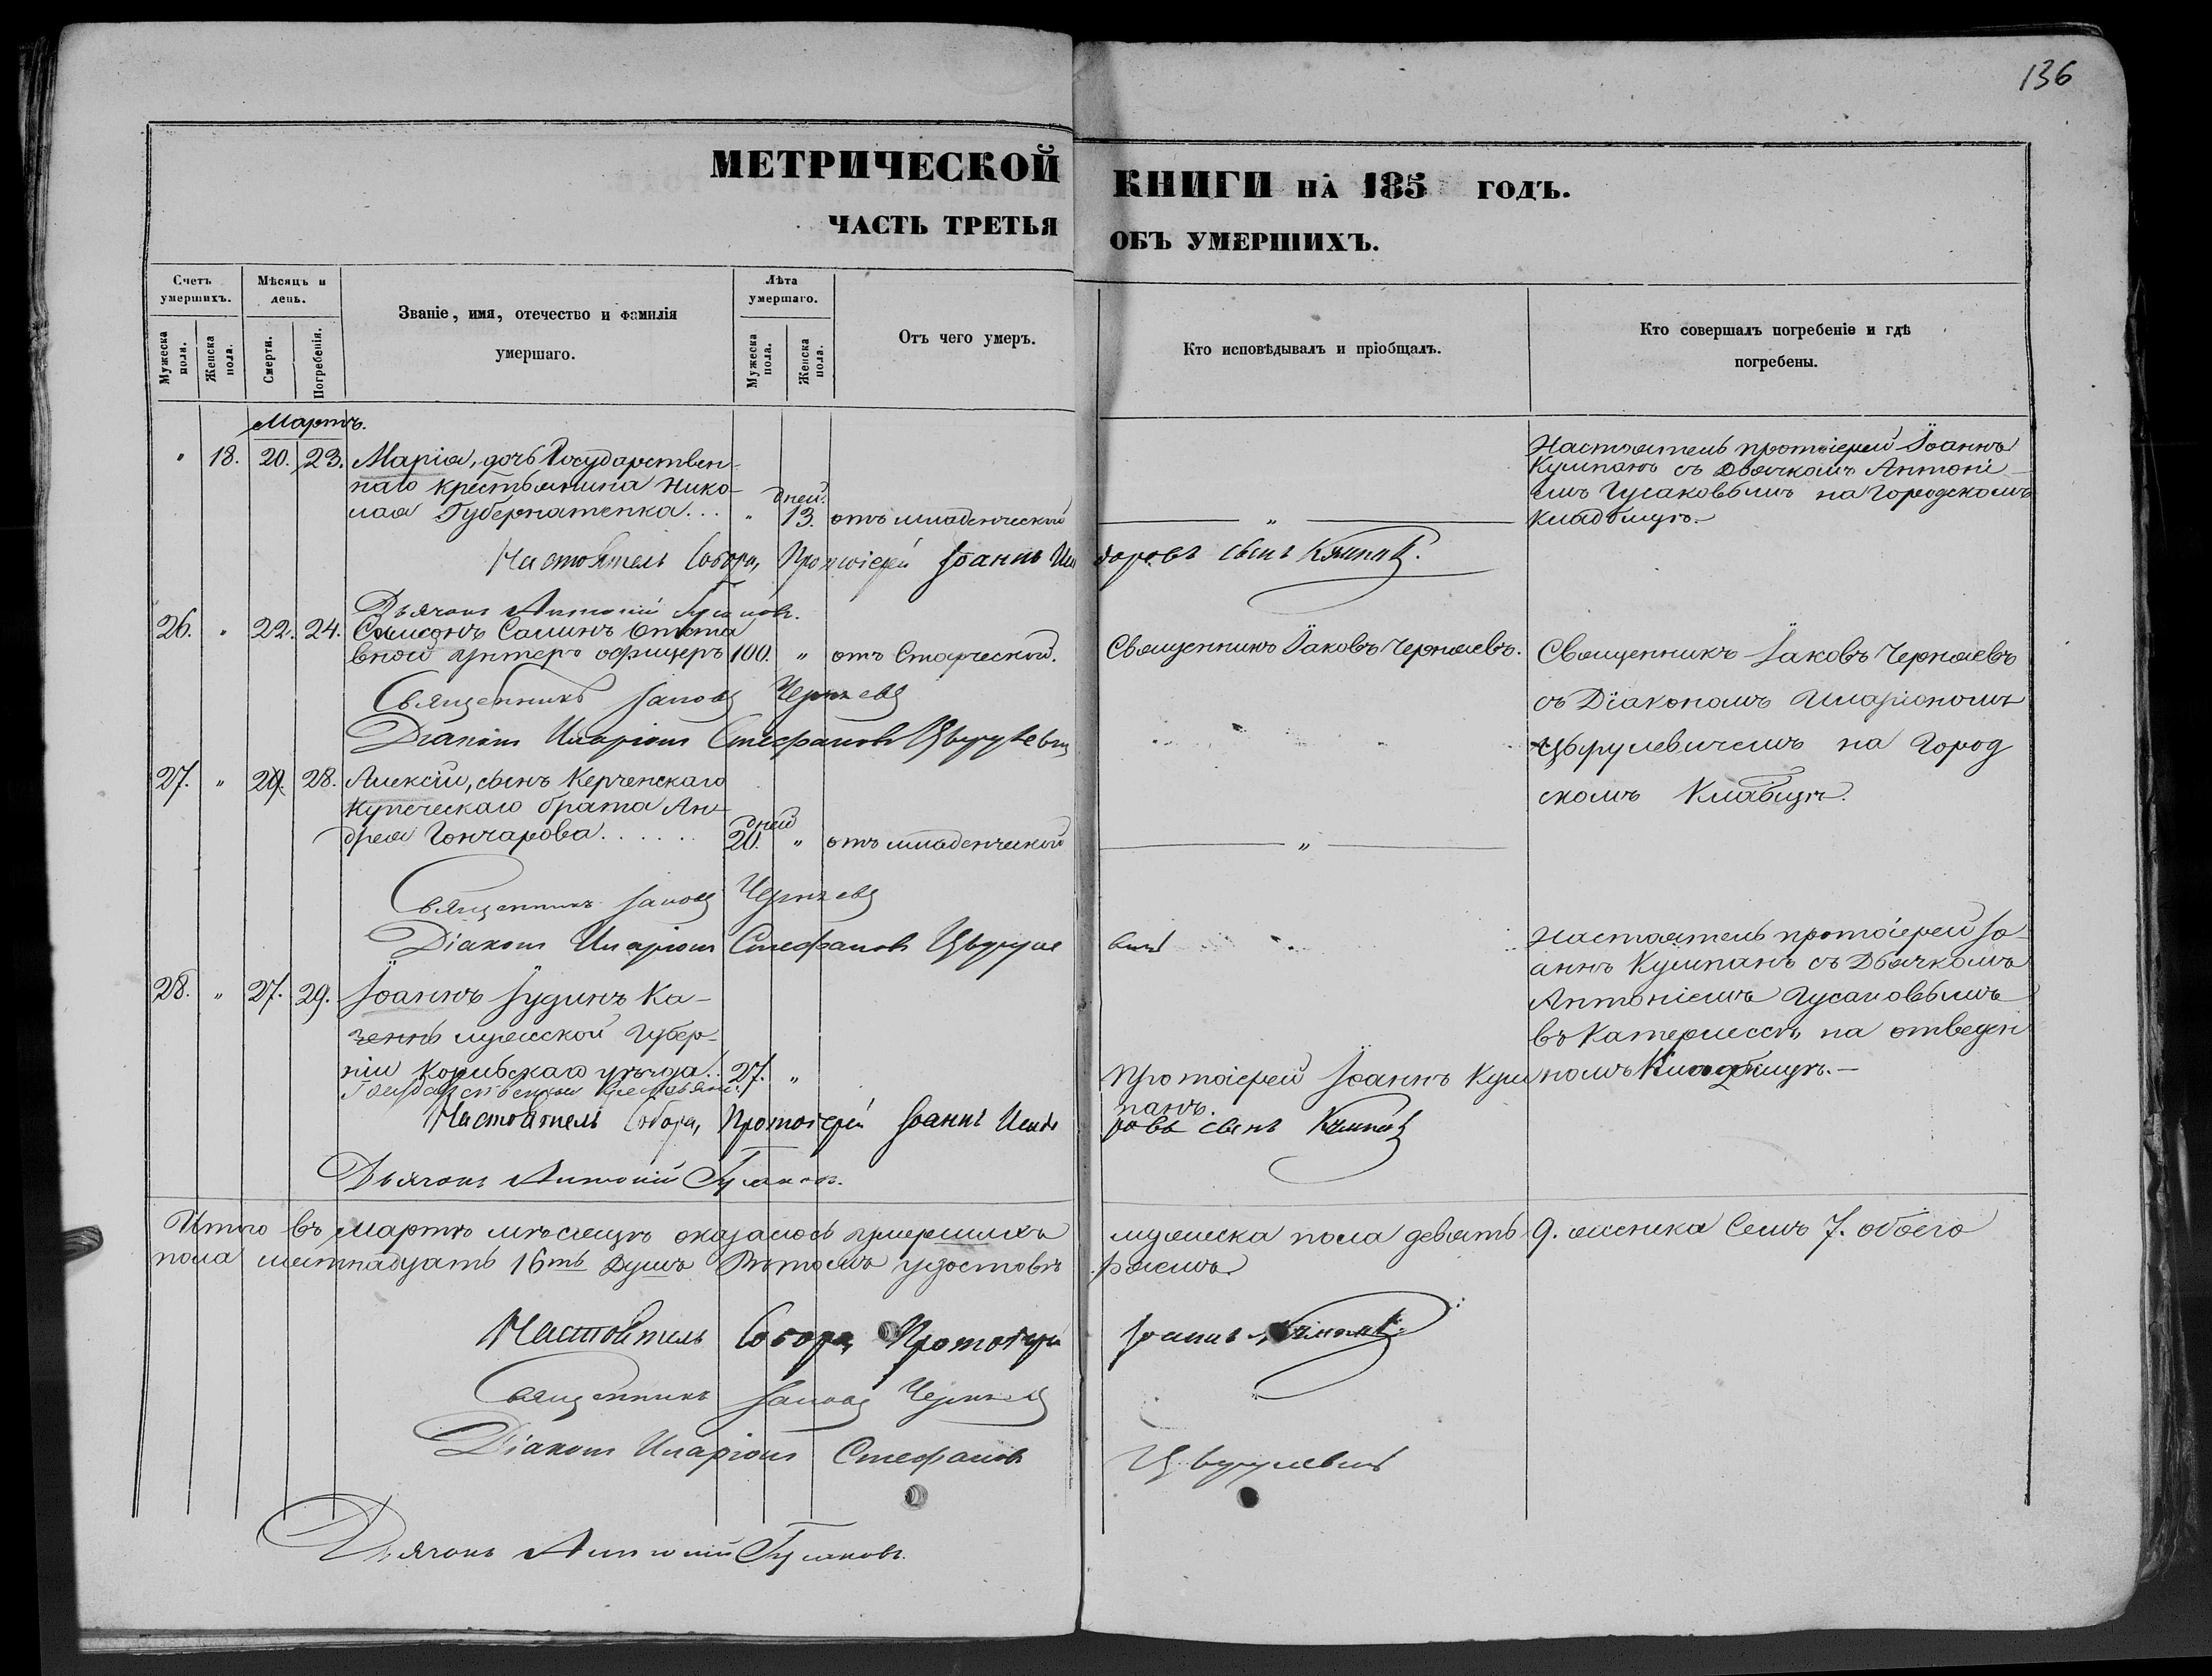 136
МЕТРИЧЕСКОЙ КНИГИ НА 185 ГОДЪ.
ЧАСТЬ ТРЕТЬЯ ОБЪ УМЕРШИХЪ.
Счетъ умершихъ.
Мужеска пола.
Женска пола.
Мѣсяцъ и день.
Смерти.
Погребенія.
Званіе, имя, отечество и фамилія умершаго.
Лѣта умершаго.
Мужеска пола.
Женска пола.
Отъ чего умеръ.
Кто исповѣдывалъ и пріобщалъ.
Кто совершалъ погребеніе и гдѣ погребены.
Мартъ.
" 18. 20. 23. Марія, дочь Государствен-
наго крестьянина Нико-
лая Губернатенка... " дней. 13. отъ младенческой
"
Настоятель протоіерей Іоаннъ
Кумпанъ съ Дьячкомъ Антоні-
емъ Гусаковымъ на Городскомъ
кладбищѣ.
Настоятель Собора, Протоіерей Іоаннъ сынъ Кумпанъ.
Дьячокъ Антоній Гусаковъ.
26. " 22. 24. Самсонъ Саминъ Отста
вной унтеръ офицеръ 100. " отъ Старческой.
Священникъ Іаковъ Черняевъ.
Священникъ Іаковъ Черняевъ
съ Діакономъ Иларіономъ
Цырулевичемъ на Город
скомъ Кладбищѣ.
Священникъ Іаковъ Черняевъ
Діаконъ Иларіонъ Стефановъ Цырулевичъ
27. " 28. Алексій, сынъ Керченскаго
купеческаго брата Ан-
дрея Гончарова...... дней 20. " отъ младенческой
"
Священникъ Іаковъ Черняевъ
Діаконъ Иларіонъ Стефановъ Цыруле
вичъ
28. " 27. 29. Іоаннъ Іудинъ Ка-
лужской Губер-
ніи уѣзда.. 27. "
Протоіерей Іоаннъ Кум
панъ.
Настоятель протоіерей Іо-
аннъ Кумпанъ съ Дьячкомъ
Антоніемъ Гусаковымъ
въ Катерлессѣ, на отведен
номъ Кладбищѣ.
Настоятель Собора, Протоіерей Іоаннъ Исидо
ровъ сынъ Кумпанъ
Дьячокъ Антоній Гусаковъ.
Итого въ Мартѣ мѣсяцѣ оказалось умершихъ мужеска пола девять 9. женска Семь 7. обоего
пола шестнадцать 16ть Душъ Въ томъ удостовѣ ряемъ.
Настоятель Собора, Протоіерей Іоаннъ Кумпанъ.
Священникъ Іаковъ Черняевъ
Діаконъ Иларіонъ Стефановъ Цырулевичъ
Дьячокъ Антоній Гусаковъ.